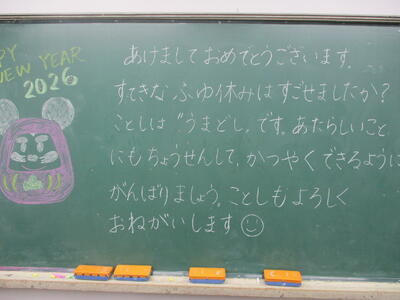 HAPPY
NEW YEAR
2026
あけましておめでとうございます。
すてきな ふゆ休みはすごせましたか？
ことしは〝うまどし〟です。あたらしいこと
にもちょうせんして、かつやくできるように
がんばりましょう。ことしもよろしく
おねがいします